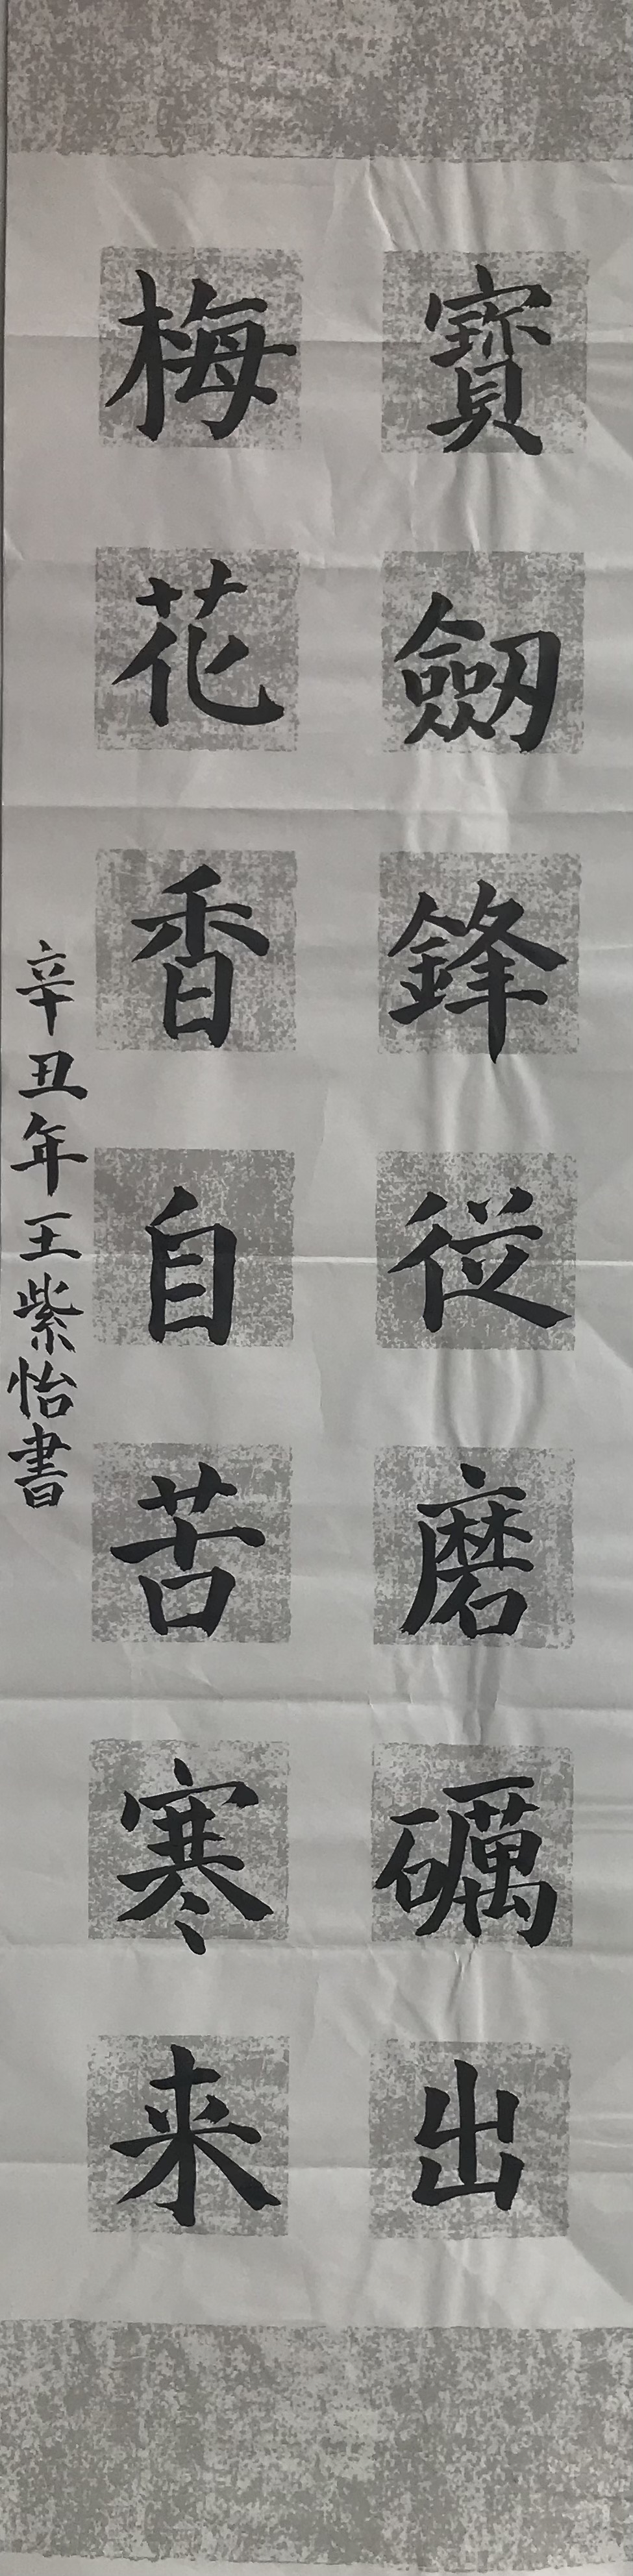 寶劔鋒從磨礪出
梅花香自苦寒来
辛丑年王紫怡書